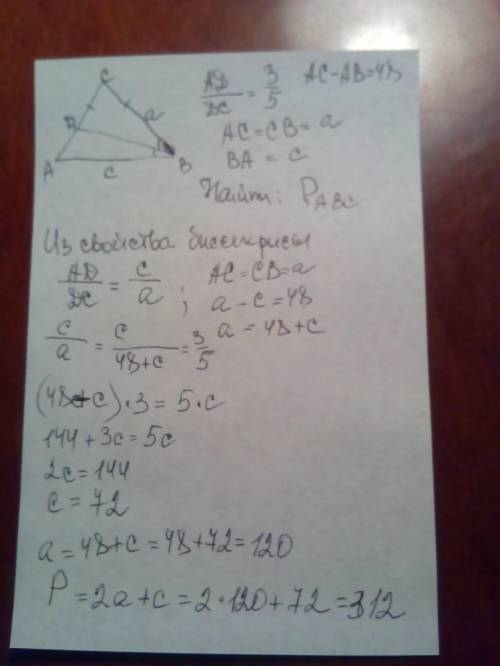 C
AD/DC = 3/5 AC-AB=48
D a
AC=CB=a
A c B
BA = c
Найти: P_ABC
Из свойства биссектрисы
AD/DC = c/a ; AC=CB=a
a-c=48
c/a = c/48+c = 3/5 a=48+c
(48+c)·3=5·c
144+3c=5c
2c=144
c=72
a=48+c=48+72=120
P=2a+c=2·120+72=312